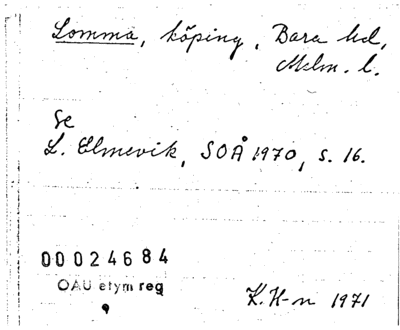 Lomma, köping, Bara hd,
Malm. l.
Se
L. Elmevik, SOÅ 1970, s. 16.
00024684
OAU etym reg
K. H-n 1971